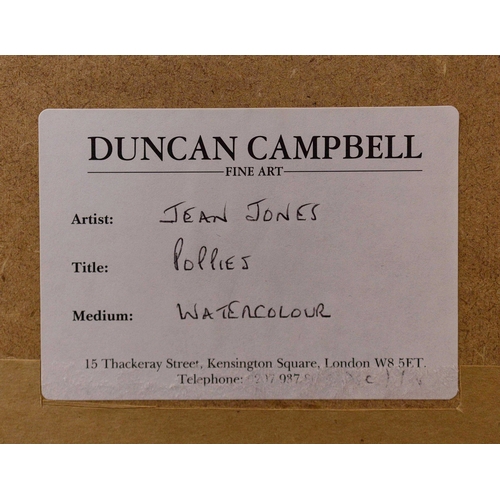 DUNCAN CAMPBELL
FINE ART
Artist: JEAN JONES
Title: POPPIES
Medium: WATERCOLOUR
15 Thackeray Street, Kensington Square, London W8 5ET.
Telephone: